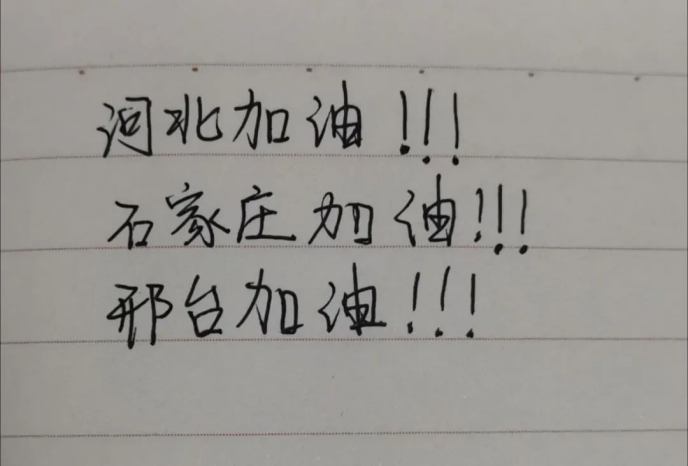 河北加油!!!
石家庄加油!!!
邢台加油!!!